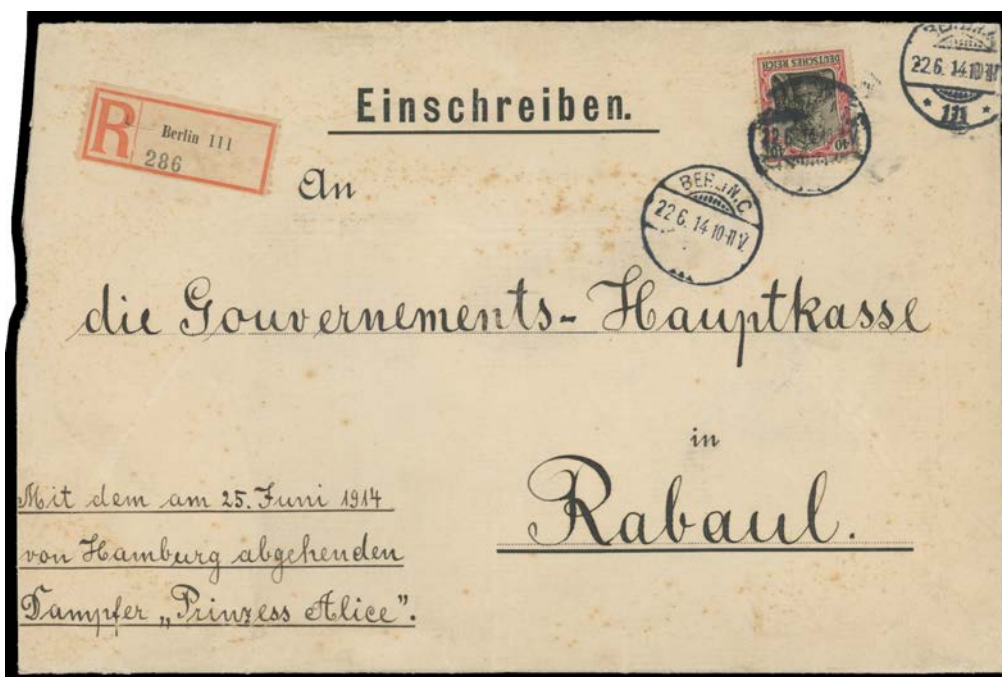 Einschreiben.
R
Berlin 111
286
DEUTSCHES REICH
40 40
22.6.14.10-11V.
111
BERLIN.C
22.6.14.10-11V.
An
die Gouvernements-Hauptkasse
in
Rabaul.
Mit dem am 25. Juni 1914
von Hamburg abgehenden
Dampfer „Prinzess Alice".